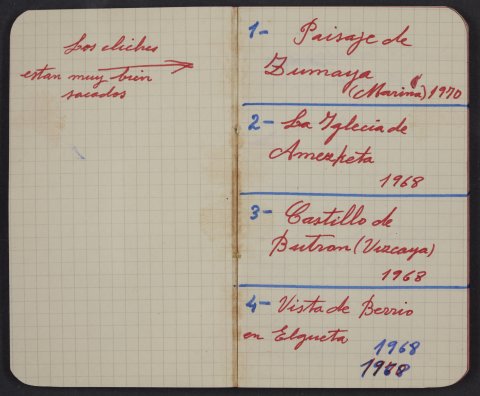 Los cliches
estan muy bien
sacados
1- Paisaje de
Zumaya
(Marina) 1970
2- La Iglecia de
Amezketa
1968
3- Castillo de
Butron (Vizcaya)
1968
4- Vista de Berrio
en Elgueta
1968
1968